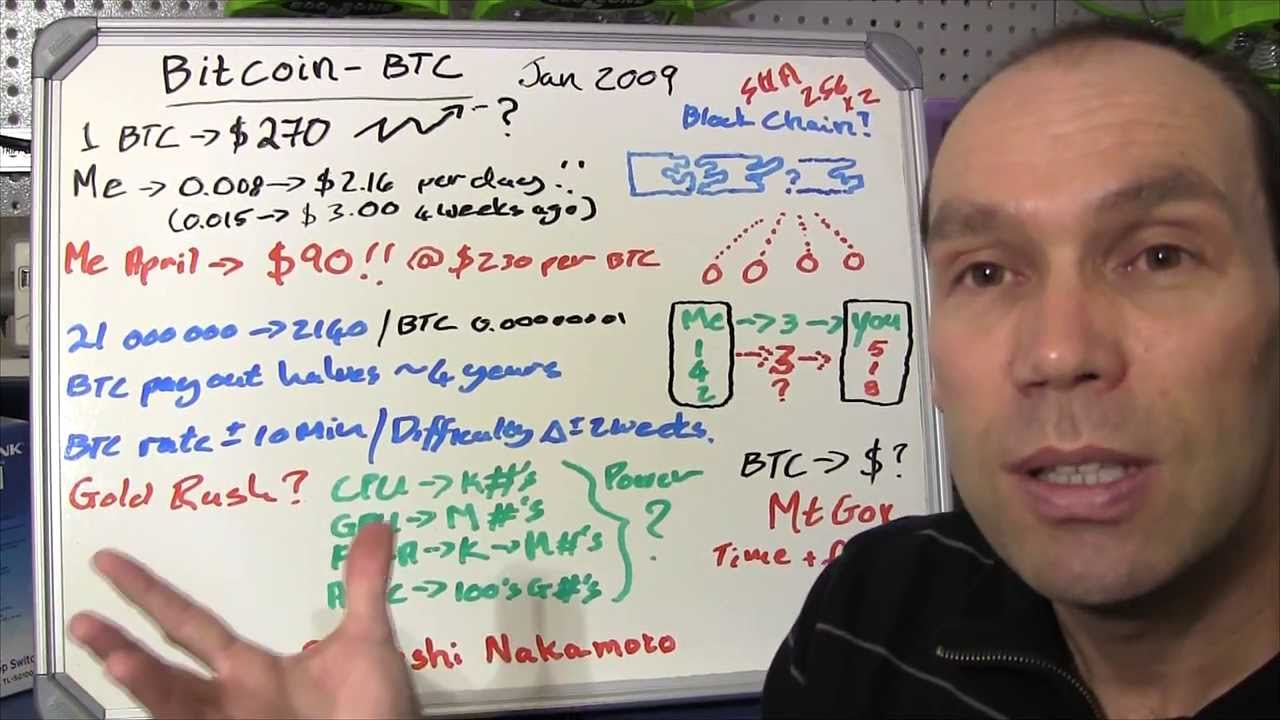 Bitcoin - BTC
Jan 2009
SHA 256 x2
Block Chain?
1 BTC → $270 - ?
?
Me → 0.008 → $2.16 per day
(0.015 → $3.00 4 weeks ago)
Me April → $90!! @ $230 per BTC
21 000 000 → 2140 / BTC 0.00000001
BTC payout halves ~4 years
BTC rate ± 10 Min / Difficulty Δ ± 2 weeks.
Me → 3 → You
1 → 3 → 5
4 1
2 ? 8
Gold Rush?
CPU → K#'s
→ M#'s
→ K → M#'s
→ 100's G#'s
Power
?
BTC → $?
Mt Gox
Time +
shi Nakamoto
INK
op Switc
TL-SG100